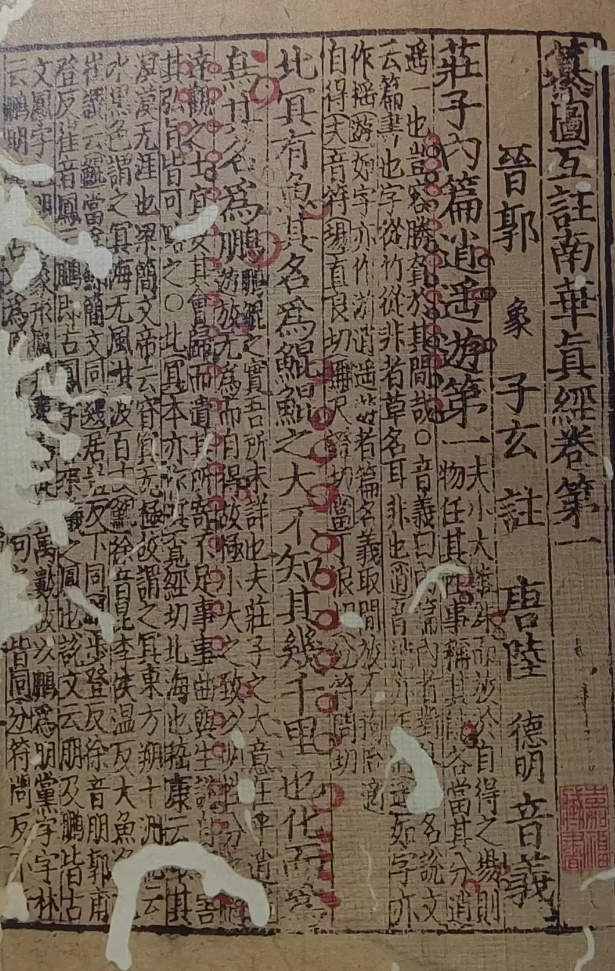 纂圖互註南華真經卷第一
晉郭象子玄註 唐陸德明音義
莊子內篇逍遥遊第一 夫小大雖殊而放於自得之場則
物任其性事稱其能各當其分逍
遥一也豈容勝負於其間哉〇音義曰内篇内者對外 名說文
云篇書也字從竹從非者草名耳非也逍音 亦作 遥如字亦
作揺遊如字亦作游逍遥遊者篇名義取閒放不拘怡適
自得夫音符場直良切稱尺證切當丁浪切分符問切
北冥有魚其名爲鯤鯤之大不知其幾千里也化而爲
鳥其名爲鵬 鵬鯤之實吾所未詳也夫莊子之大意在乎逍遥
遊放无爲而自得故極小大之致以明性分之適
達觀之士宜要其會歸而遺其所寄不足事事曲與生說自
其弘旨皆可略之〇北冥本亦作溟覓經切北海也嵇康云 其
漠无涯也梁簡文帝云窅冥无極故謂之冥東方朔十洲 云
水黑色謂之冥海无風洪波百丈鯤徐音昆李侯温反大魚名
崔譔云鯤當爲鯨簡文同幾居豈反下同鵬步登反徐音朋郭甫
登反崔音鳳云鵬即古鳳字非來儀之鳳也說文云朋及鵬皆古
文鳳字 朋 象形鳳 萬數故以鵬爲朋黨字字林
云鵬朋 古 爲 同 皆同分符問反
嘉福